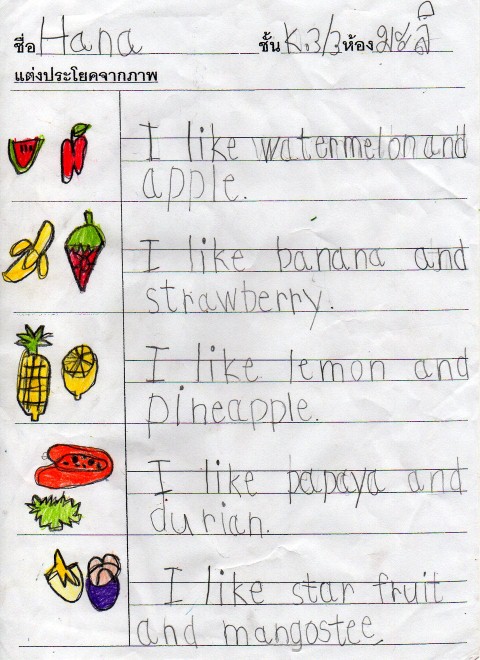 ชื่อ Hana ชั้น K.3/3 ห้อง มะลิ
แต่งประโยคจากภาพ
I like watermelon and
apple.
I like banana and
strawberry.
I like lemon and
pineapple.
I like papaya and
durian.
I like star fruit
and mangostee